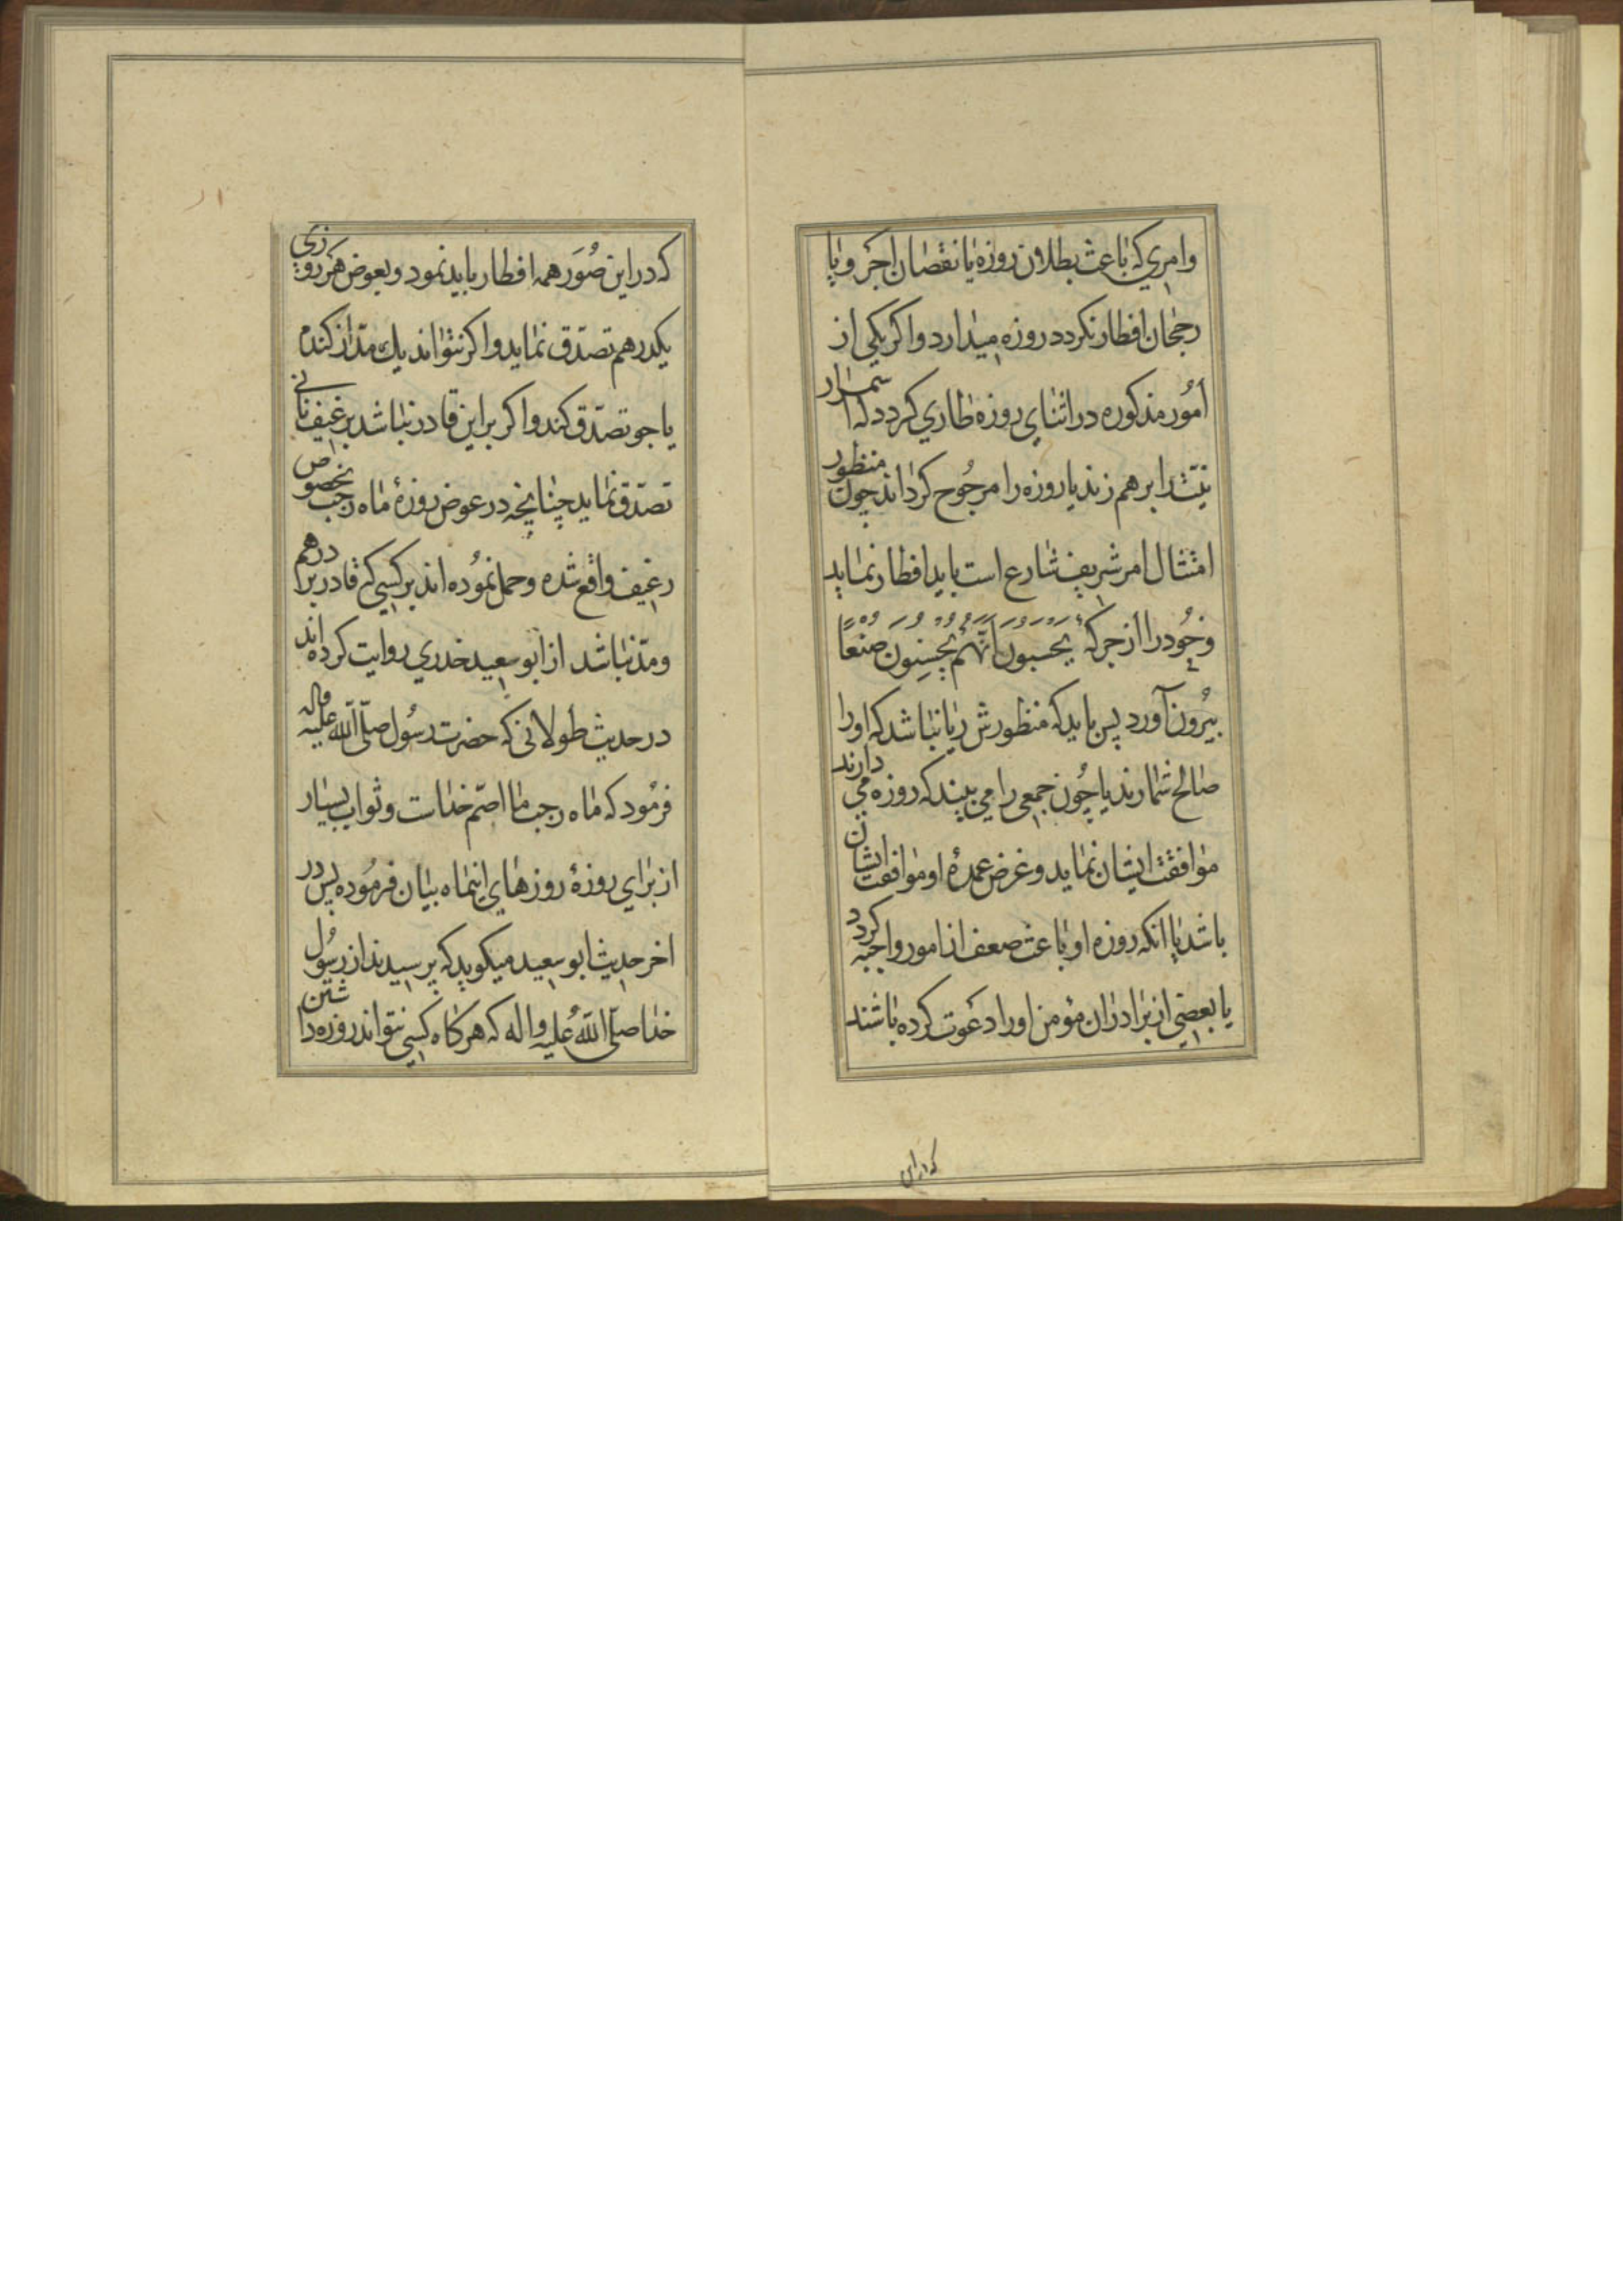 وامري که باعث بطلان روزه یا نقصان اجر و یا
رجحان افطار نکردد روزه میدارد واکر یکی از
امور مذکوره در اثنای روزه طاري کردد که
نیتش را برهم زند یا روزه را مرجوح کرداند چون منظور
امتثال امر شریف شارع است باید افطار نماید
وخود را از جرکه یَحسَبونَ اَنَّهُم یُحسِنونَ صُنعًا
بیرون آورد پس باید که منظورش ریا نباشد که او را
صالح شمارند یا چون جمعی را می بیند که روزه می دارند
موافقت ایشان نماید وغرض عمدهٔ او موافقت ایشان
باشد یا انکه روزه او باعث ضعف از امور واجبه کردد
یا بعضی از برادران مؤمن او را دعوت کرده باشند
که در این
که در این صُوَر همه افطار باید نمود وبعوض هر روزی
یکدرهم تصدّق نماید واکر نتواند یك مدّ از کندم
یا جو تصدّق کند واکر بر این قادر نباشد برغیف نانی
تصدّق نماید چنانچه در عوض روزهٔ ماه رجب بخصوص
رغیف واقع شده وحمل نموده اند بر کسی که قادر بر درهم
ومدّ نباشد از ابو سعید خدري روایت کرده اند
در حدیث طولانی که حضرت رسُول صلّی اللّه علیه واله
فرمود که ماه رجب ماه اصمّ خداست وثواب بسیار
از برای روزهٔ روزهای اینماه بیان فرموده پس در
اخر حدیث ابو سعید میکوید که پرسیدند از رسُول
خدا صلّی اللّه علیه واله که هرکاه کسی نتواند روزه داشتن